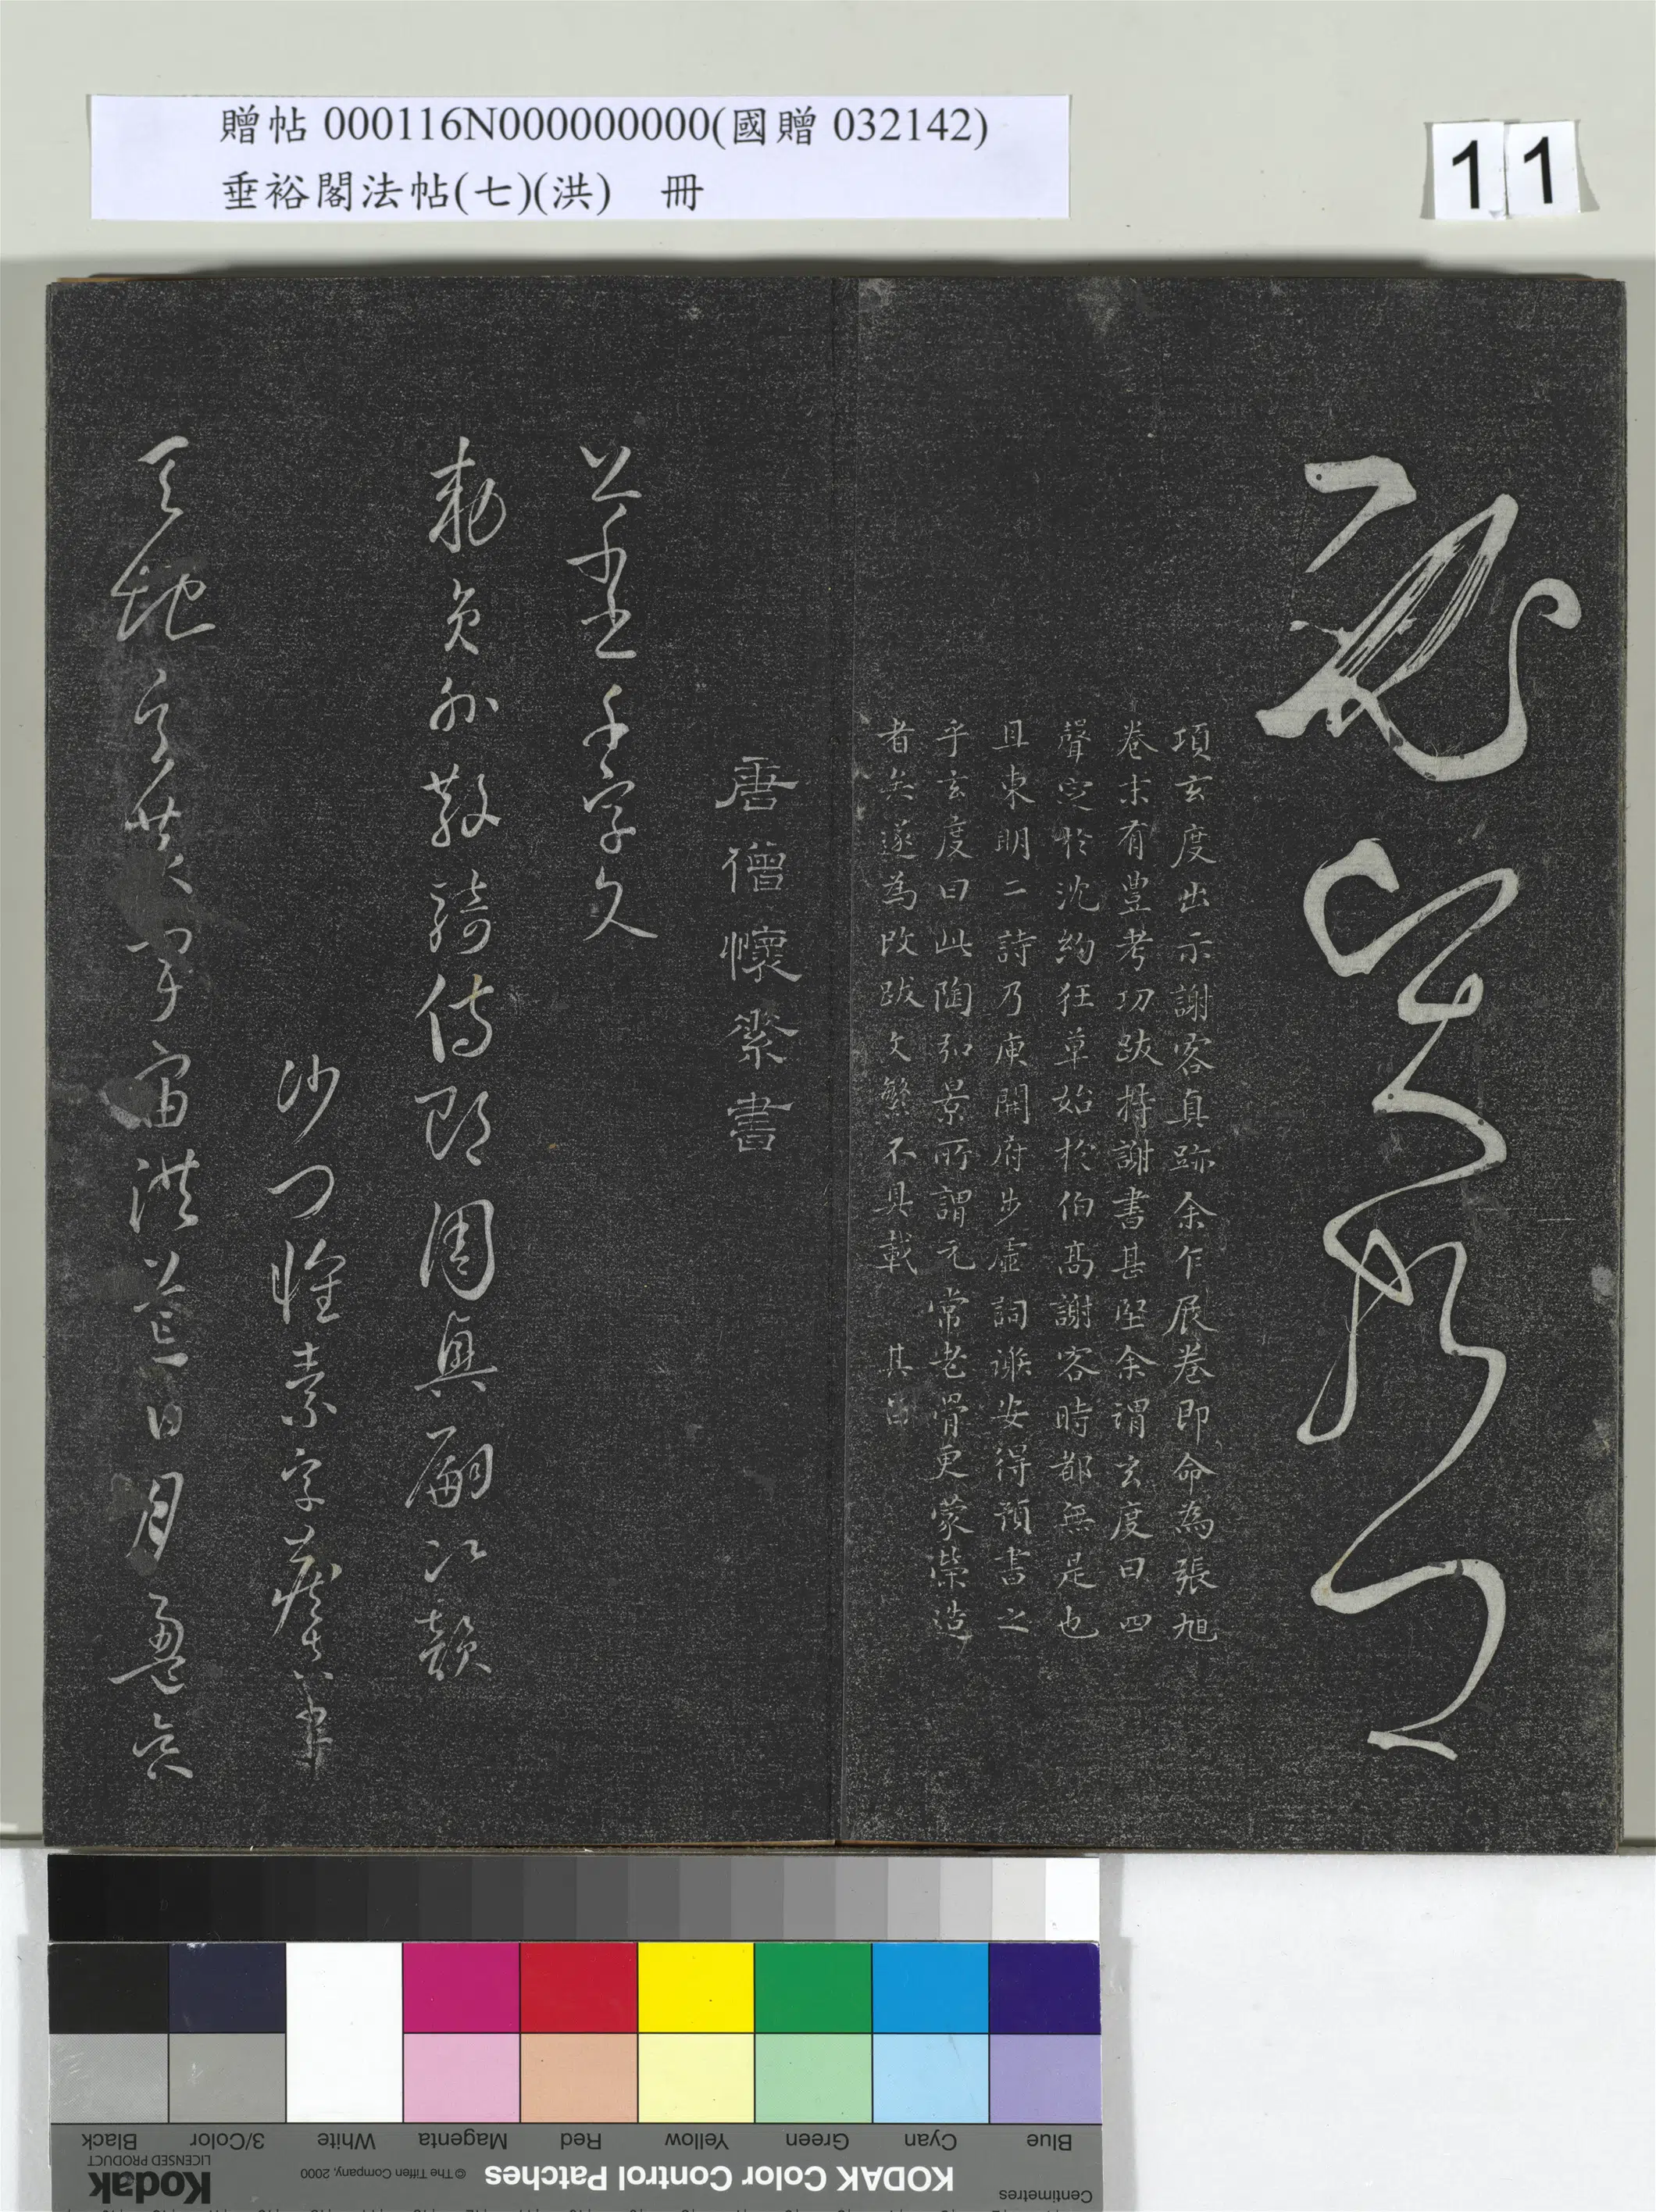 贈帖 000116N000000000(國贈 032142)
垂裕閣法帖(七)(洪) 冊
11
項玄度出示謝客真跡余乍展卷即命為張旭
卷末有豐考功跋持謝書甚堅余謂玄度曰四
聲定於沈約狂草始於伯高謝客時都無是也
且東明二詩乃庾開府步虛詞謝安得預書之
乎玄度曰此陶弘景所謂元常老骨更蒙榮造
者矣遂為改跋文繁不具載 其昌
唐僧懷素書
草書千字文
勅員外散騎侍郎周興嗣次韻
沙門懷素字藏真書
天地玄黃宇宙洪荒日月盈昃
Blue Cyan Green Yellow Red Magenta White 3/Color Black
Centimetres KODAK Color Control Patches © The Tiffen Company, 2000 Kodak LICENSED PRODUCT